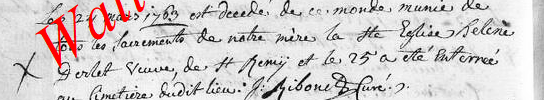 Les 24 mars 1763 est decedé de ce monde munie de
tous les sacrements de notre mère la Ste Eglise Selene
Derlet veuve, de St Remij et le 25 a été Enterreé
au Cimetiere dudit lieu. J: Ribonet Curé.
Wa